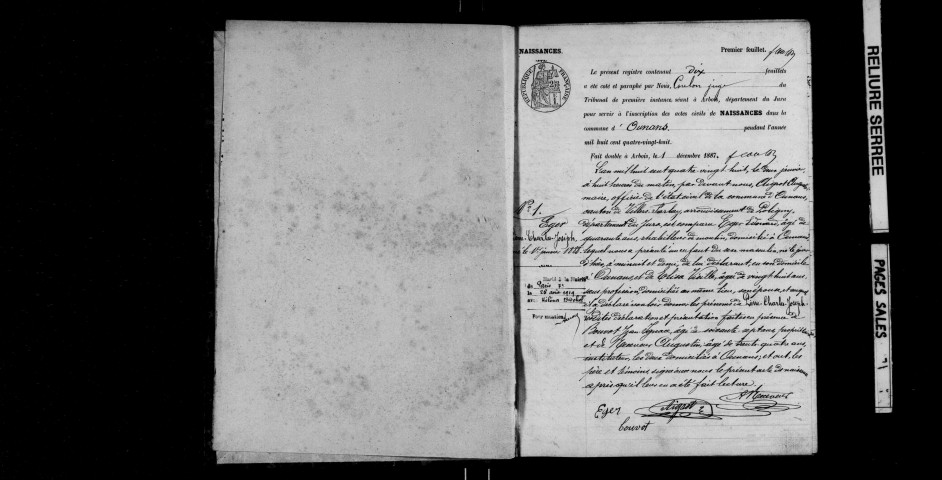 NAISSANCES.
Premier feuillet.
RÉPUBLIQUE FRANÇAISE
Le présent registre contenant dix feuillets
a été coté et paraphé par Nous, Coulon juge du
Tribunal de première instance séant à Arbois, département du Jura
pour servir à l'inscription des actes civils de NAISSANCES dans la
commune d' Ounans pendant l'année
mil huit cent quatre-vingt-huit.
Fait double à Arbois, le 1 décembre 1887.
L'an mil huit cent quatre vingt huit, le deux janvier,
à huit heures du matin, par devant nous,
maire, officier de l'état civil de la commune d'Ounans,
canton de Villers Farlay, arrondissement de Poligny,
département du Jura, est comparu Eger Léonard, âgé de
quarante ans, rhabilleur de moulin, domicilié à Ounans
lequel nous a présenté un enfant du sexe masculin, né le jour
d'hier, à minuit et demi, de lui déclarant, en son domicile
Ounans et de Elisa, âgée de vingt huit ans,
sans profession, domiciliée au même lieu, son épouse, et auquel
il a déclaré vouloir donner les prénoms de Charles Joseph
lesdites déclaration et présentation faites en présence de
Bouvot Jean Ignace, âgé de soixante sept ans, propriétaire
et de Augustin, âgé de trente quatre ans,
instituteur, les deux domiciliés à Ounans; et ont, les
père et témoins signé avec nous le présent acte de naissance
après qu'il leur en a été fait lecture.
N° 1.
Eger
Charles Joseph
1er janvier 1888
Marié à la Mairie
de Paris
le 26 août 1919
avec Hélène
Pour mention
Eger
bouvot
RELIURE SERREE
PAGES SALES